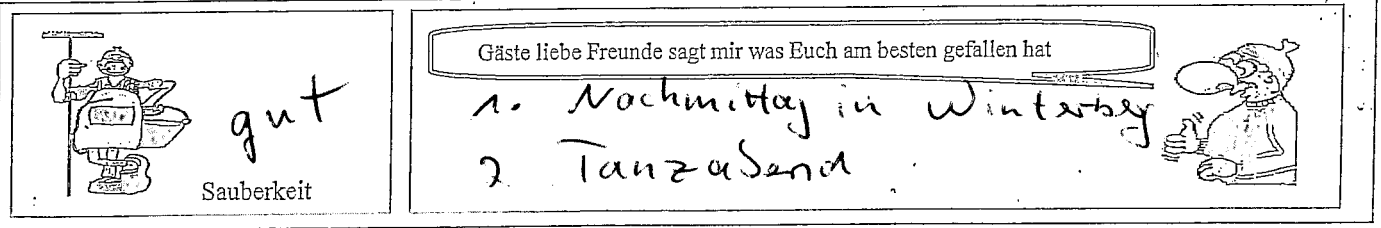 gut
Sauberkeit
Gäste liebe Freunde sagt mir was Euch am besten gefallen hat
1. Nachmittag in Winterberg
2 Tanzabend